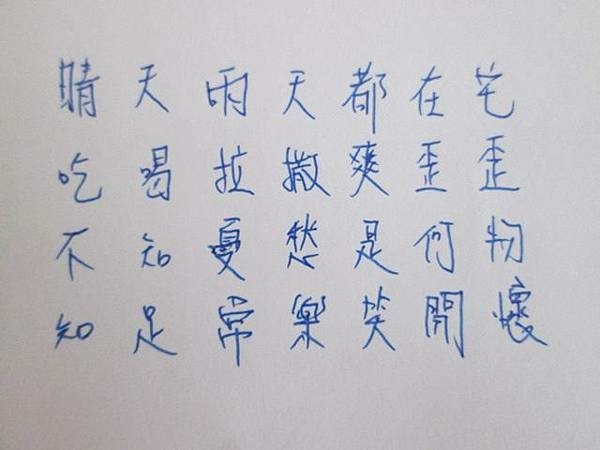 晴天雨天都在宅
吃喝拉撒爽歪歪
不知憂愁是何物
知足常樂笑開懷